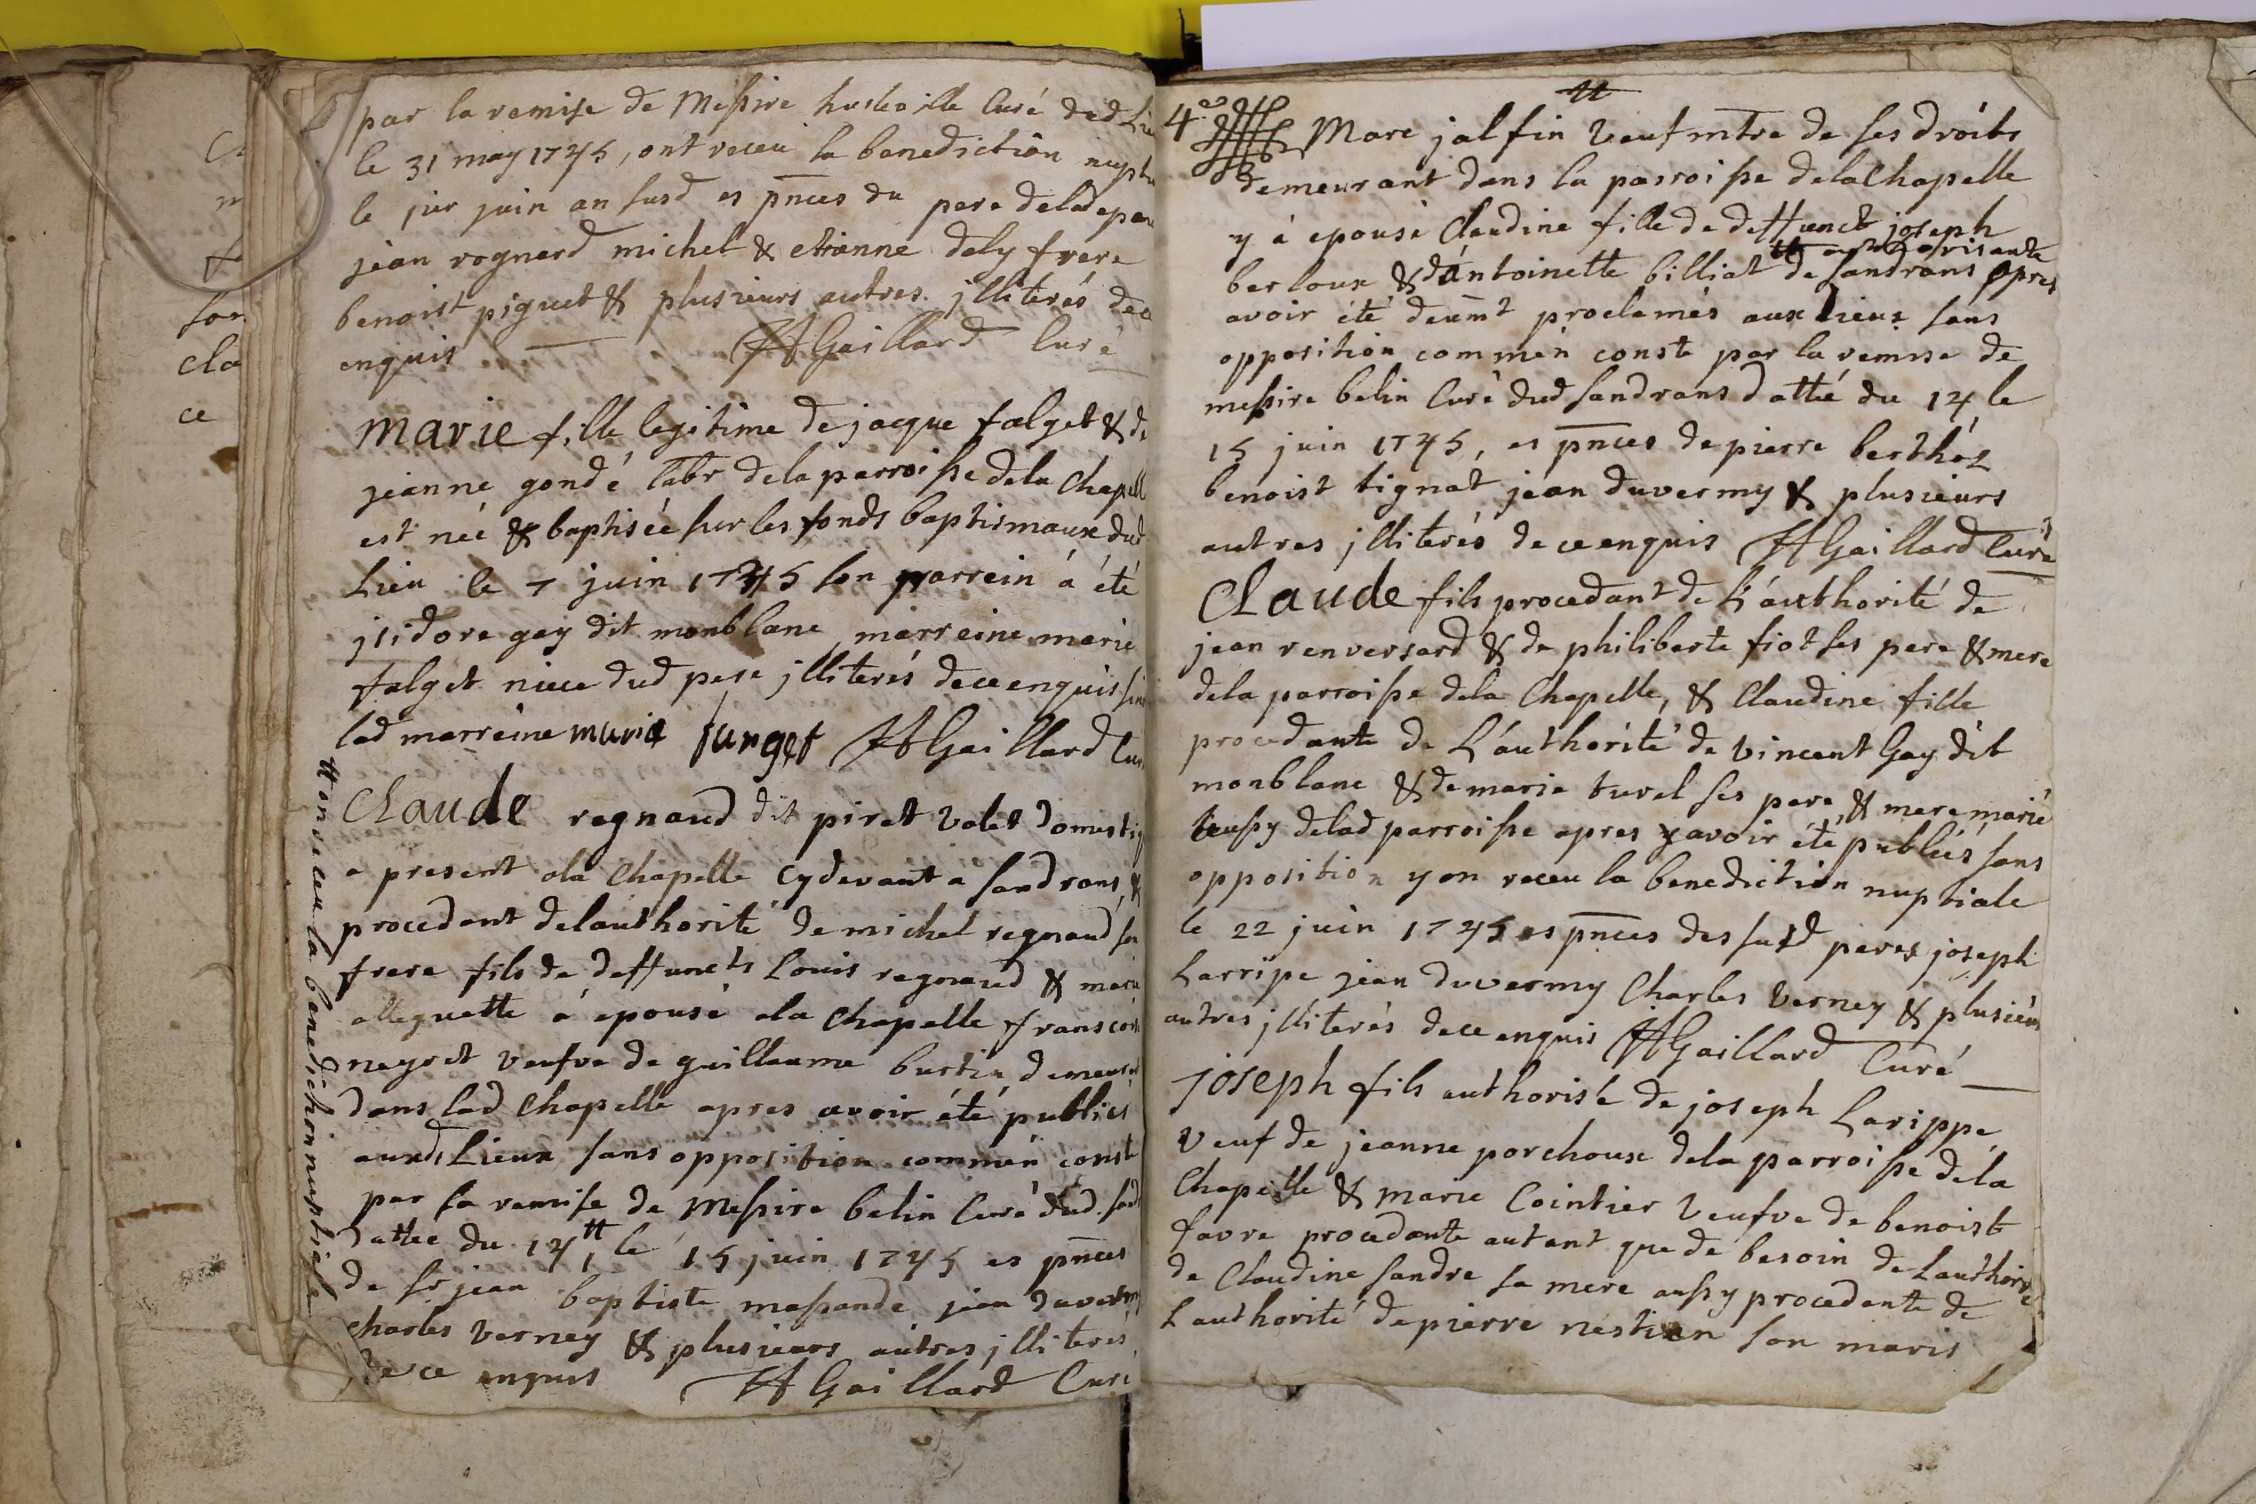 par la remise de Messire curé dud Lie
le 31 may 1745, ont receu la benediction nuptia
le jer juin an susd es pnces du pere delad epou
jean rognard michel & etienne dely frere
benoist piguet & plusieurs autres jlliterés de ce
enquis HGaillard Curé
Marie fille legitime de jacque falget & de
jeanne gondé labr dela parroisse dela Chapell
est née & baptisée sur les fonds baptismaux dud
Lieu le 7 juin 1745 son parrein á été
jsidore gay dit monblanc marreine marie
falget niece dud pere jlliterés de ce enquis sin
lad marreine marie HGaillard Cur
Claude regnaud dit piret valet domestiq
a present ala Chapelle Cydevant a sandrans, &
procedant delauthorité de michel regnaud son
frere fils de deffuncts Louis regnaud & marie
alleguette á epousé ala Chapelle franscois
neyret veufve de guillaume burtin demeurt
dans lad Chapelle apres avoir été publiés
auxds Lieux sans opposition commén conste
par la remise de Messire belin Curé dud. sand
dattée du 14 tt le 15 juin 1745 es pnces
de sr jean baptiste massande jean duvermy
charles verney & plusieurs autres jlliterés
de ce enquis HGaillard Curé
tt on receu la benediction nuptiale
Ca
m
f
son
cla
ce
4e
tt
Marc jalfin veuf mtre de ses droits
demeurant dans la parroisse dela Chapelle
y á epousé Claudine fille de deffunct joseph
berloux & d'antoinette billiat tt de sandrans apres
avoir été deumt proclamés aux Lieux sans
opposition commén conste par la remise de
messire belin Curé dud sandrans datté du 14, le
15 juin 1745, es pnces de pierre berthoz
benoist tignat jean duvermy & plusieurs
autres jlliterés de ce enquis HGaillard Curé
Claude fils procedant de L'authorité de
jean renversard & de philiberte fiot ses pere & mere
dela parroisse dela Chapelle, & Claudine fille
procedante de L'authorité de vincent Gay dit
monblanc & de marie turel ses pere & mere marié
aussy delad parroisse apres y avoir été publiés sans
opposition y on receu la benediction nuptiale
le 22 juin 1745 es pnces des susd peres joseph
Larripe jean duvermy Charles verney & plusieurs
autres jlliterés de ce enquis HGaillard Curé
joseph fils authorisé de joseph Larippe
veuf de jeanne porchoux dela parroisse dela
Chapelle & marie Cointier veufve de benoist
favre procedante autant que de besoin de Lauthorité
de Claudine sandre sa mere aussy procedante de
Lauthorité de pierre son maris